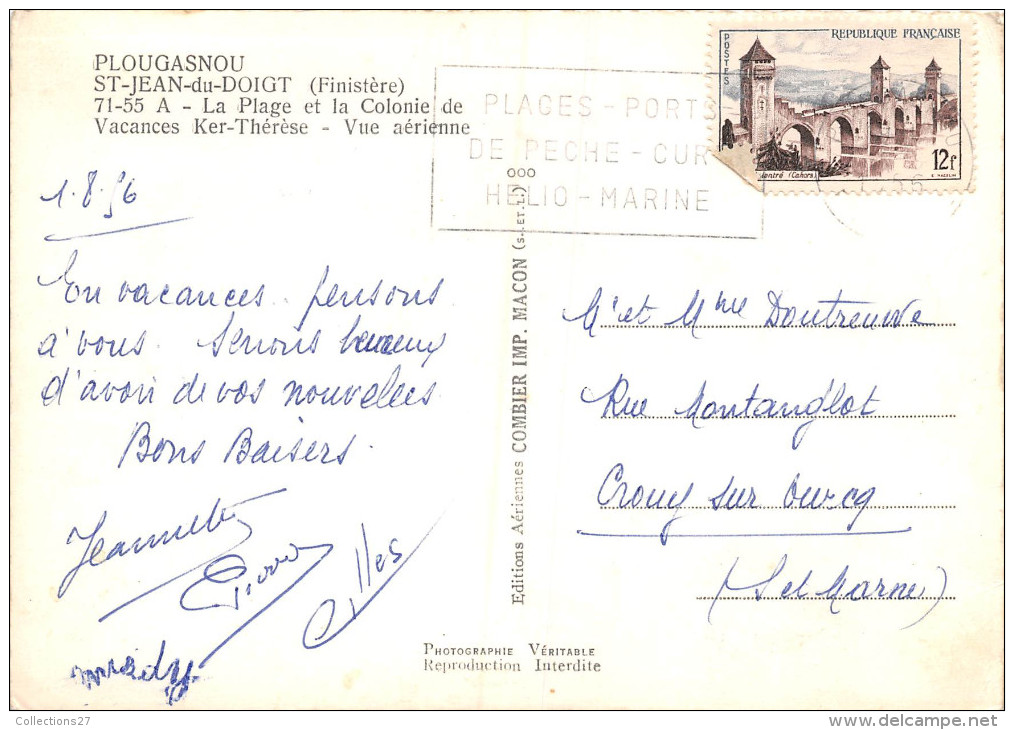 PLOUGASNOU
ST-JEAN-du-DOIGT (Finistère)
71-55 A - La Plage et la Colonie de
Vacances Ker-Thérèse - Vue aérienne
PLAGES - PORTS
DE PECHE - CUR
HELIO - MARINE
POSTES
REPUBLIQUE FRANÇAISE
12f
(Cahors)
1.8.56
En vacances. pensons
à vous. Serions heureux
d'avoir de vos nouvelles
Bons Baisers.
Jeannette
Pierre
Gilles
Editions Aériennes COMBIER IMP. MACON (S.-ET-L.)
M' et Mme Doutreuwe
Rue Montanglot
Crouy sur Ourcq
(S et Marne)
PHOTOGRAPHIE VÉRITABLE
Reproduction Interdite
Collections27
delcampe.net